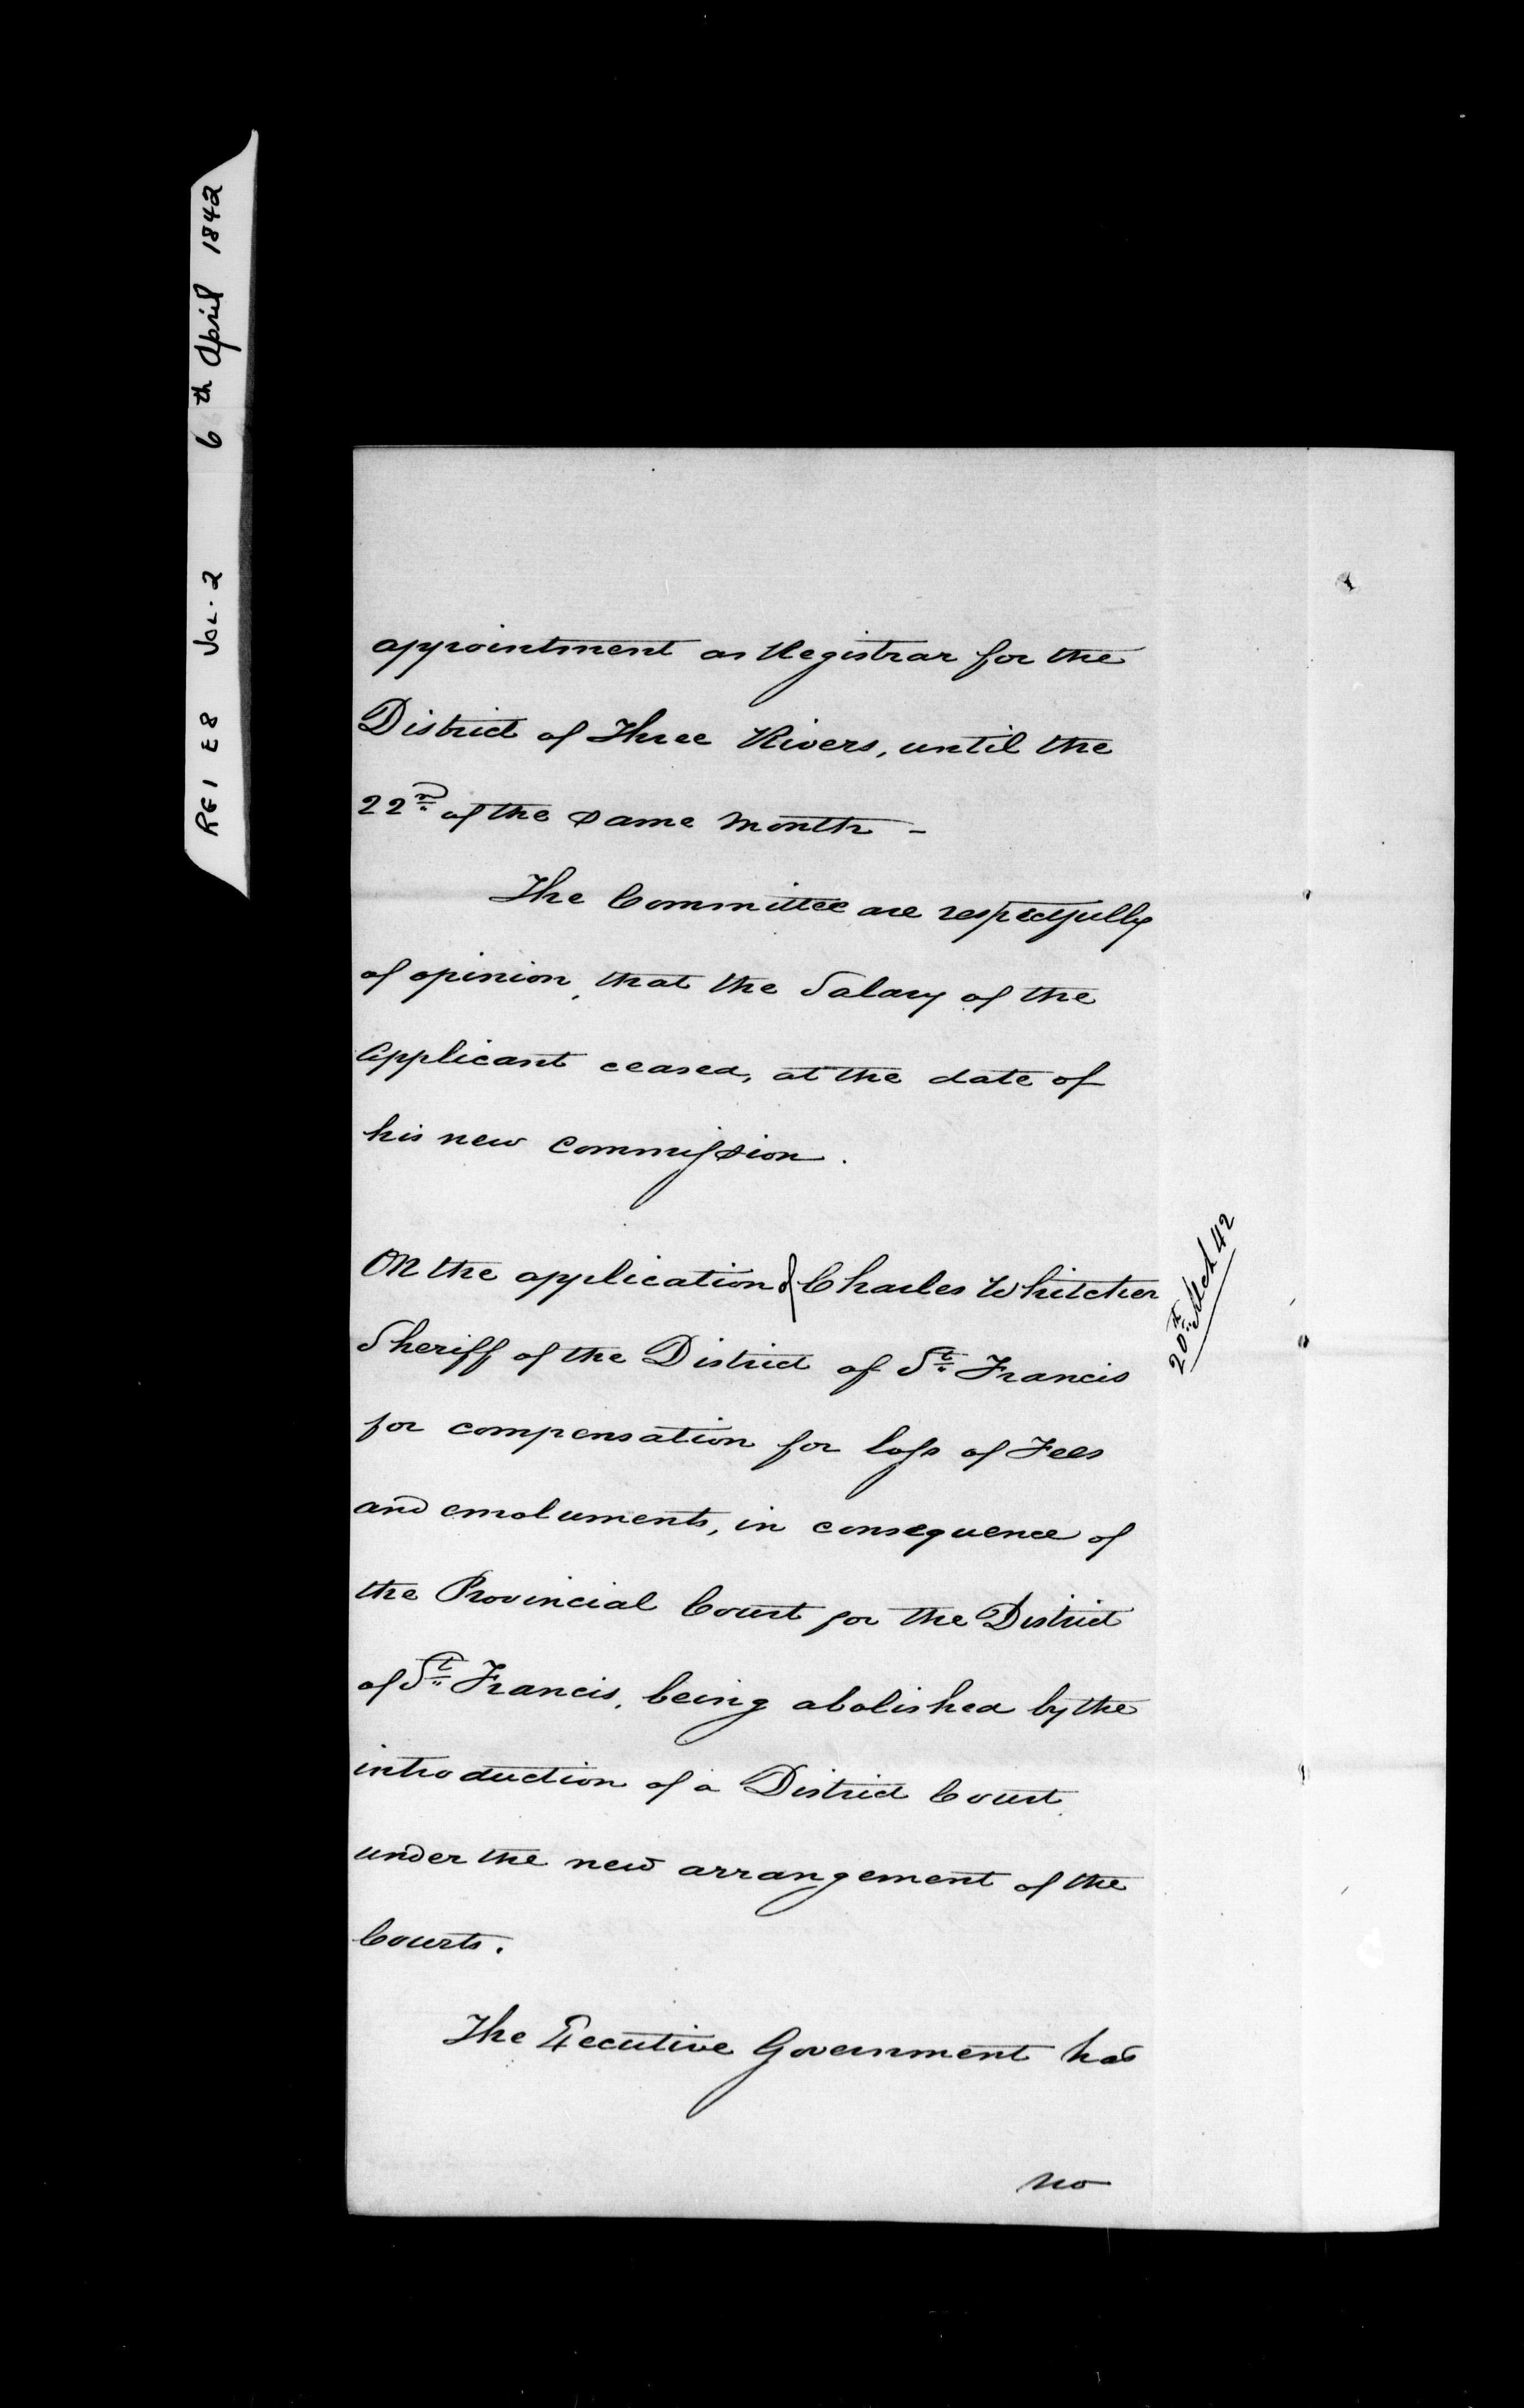 RG1 E8 VOL. 2 6th April 1842
appointment as Registrar for the
District of Three Rivers, until the
22nd of the same month -
The Committee are respectfully
of opinion, that the Salary of the
Applicant ceased, at the date of
his new Commission.
On the application of Charles Whitcher
Sheriff of the District of St. Francis
for compensation for loss of Fees
and emoluments, in consequence of
the Provincial Court for the District
of St. Francis, being abolished by the
introduction of a District Court
under the new arrangement of the
Courts.
20th Mch 42
The Executive Government has
no